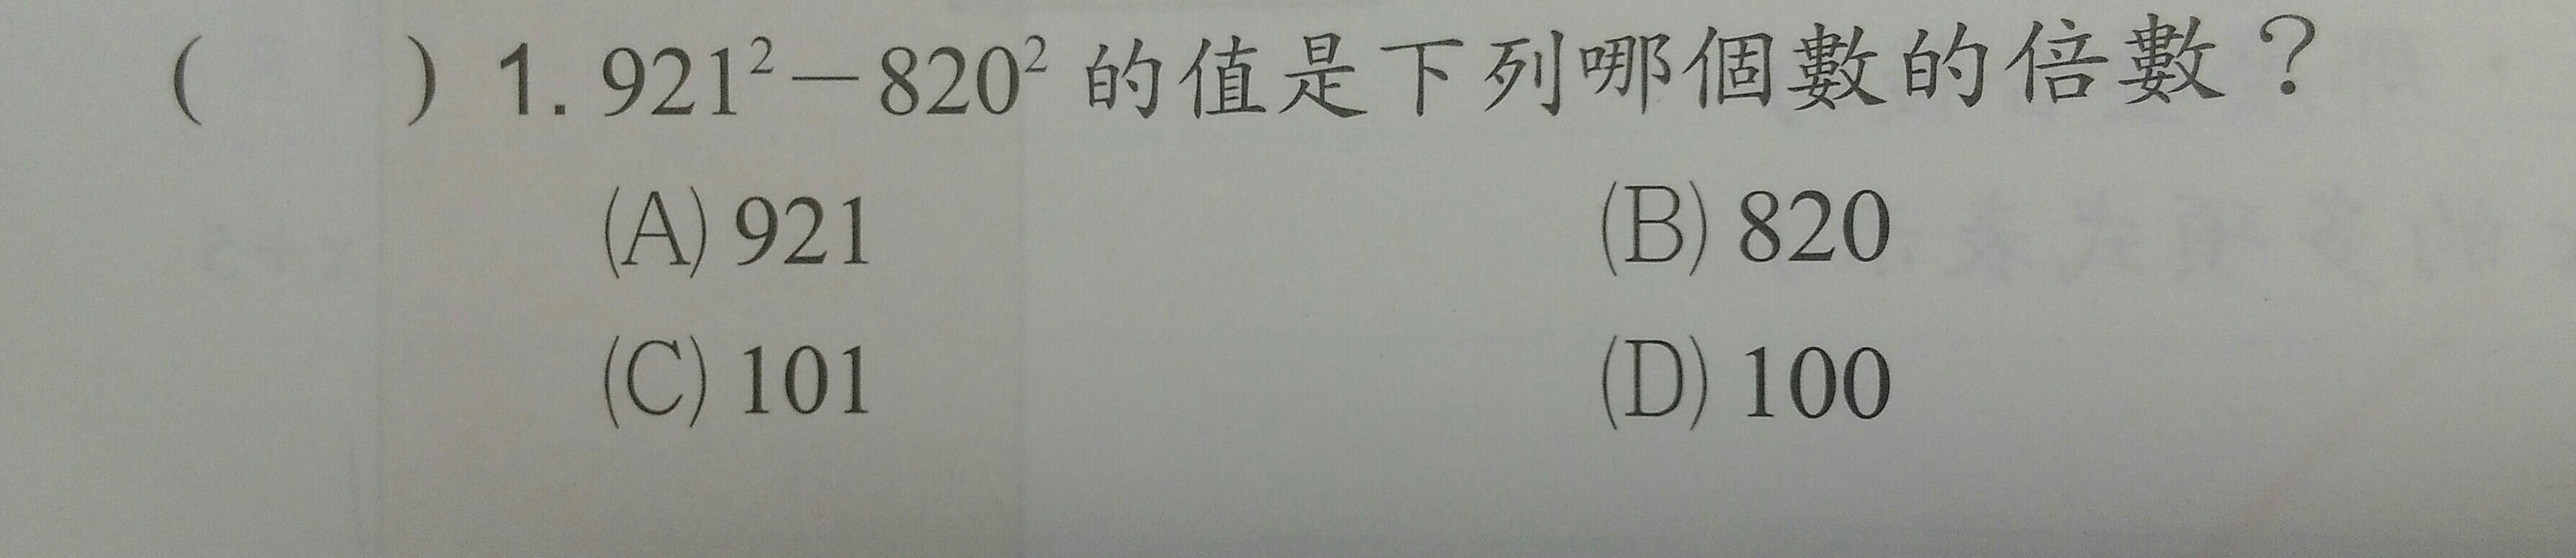 (　　) 1. 921²－820² 的值是下列哪個數的倍數？
(A) 921　(B) 820
(C) 101　(D) 100